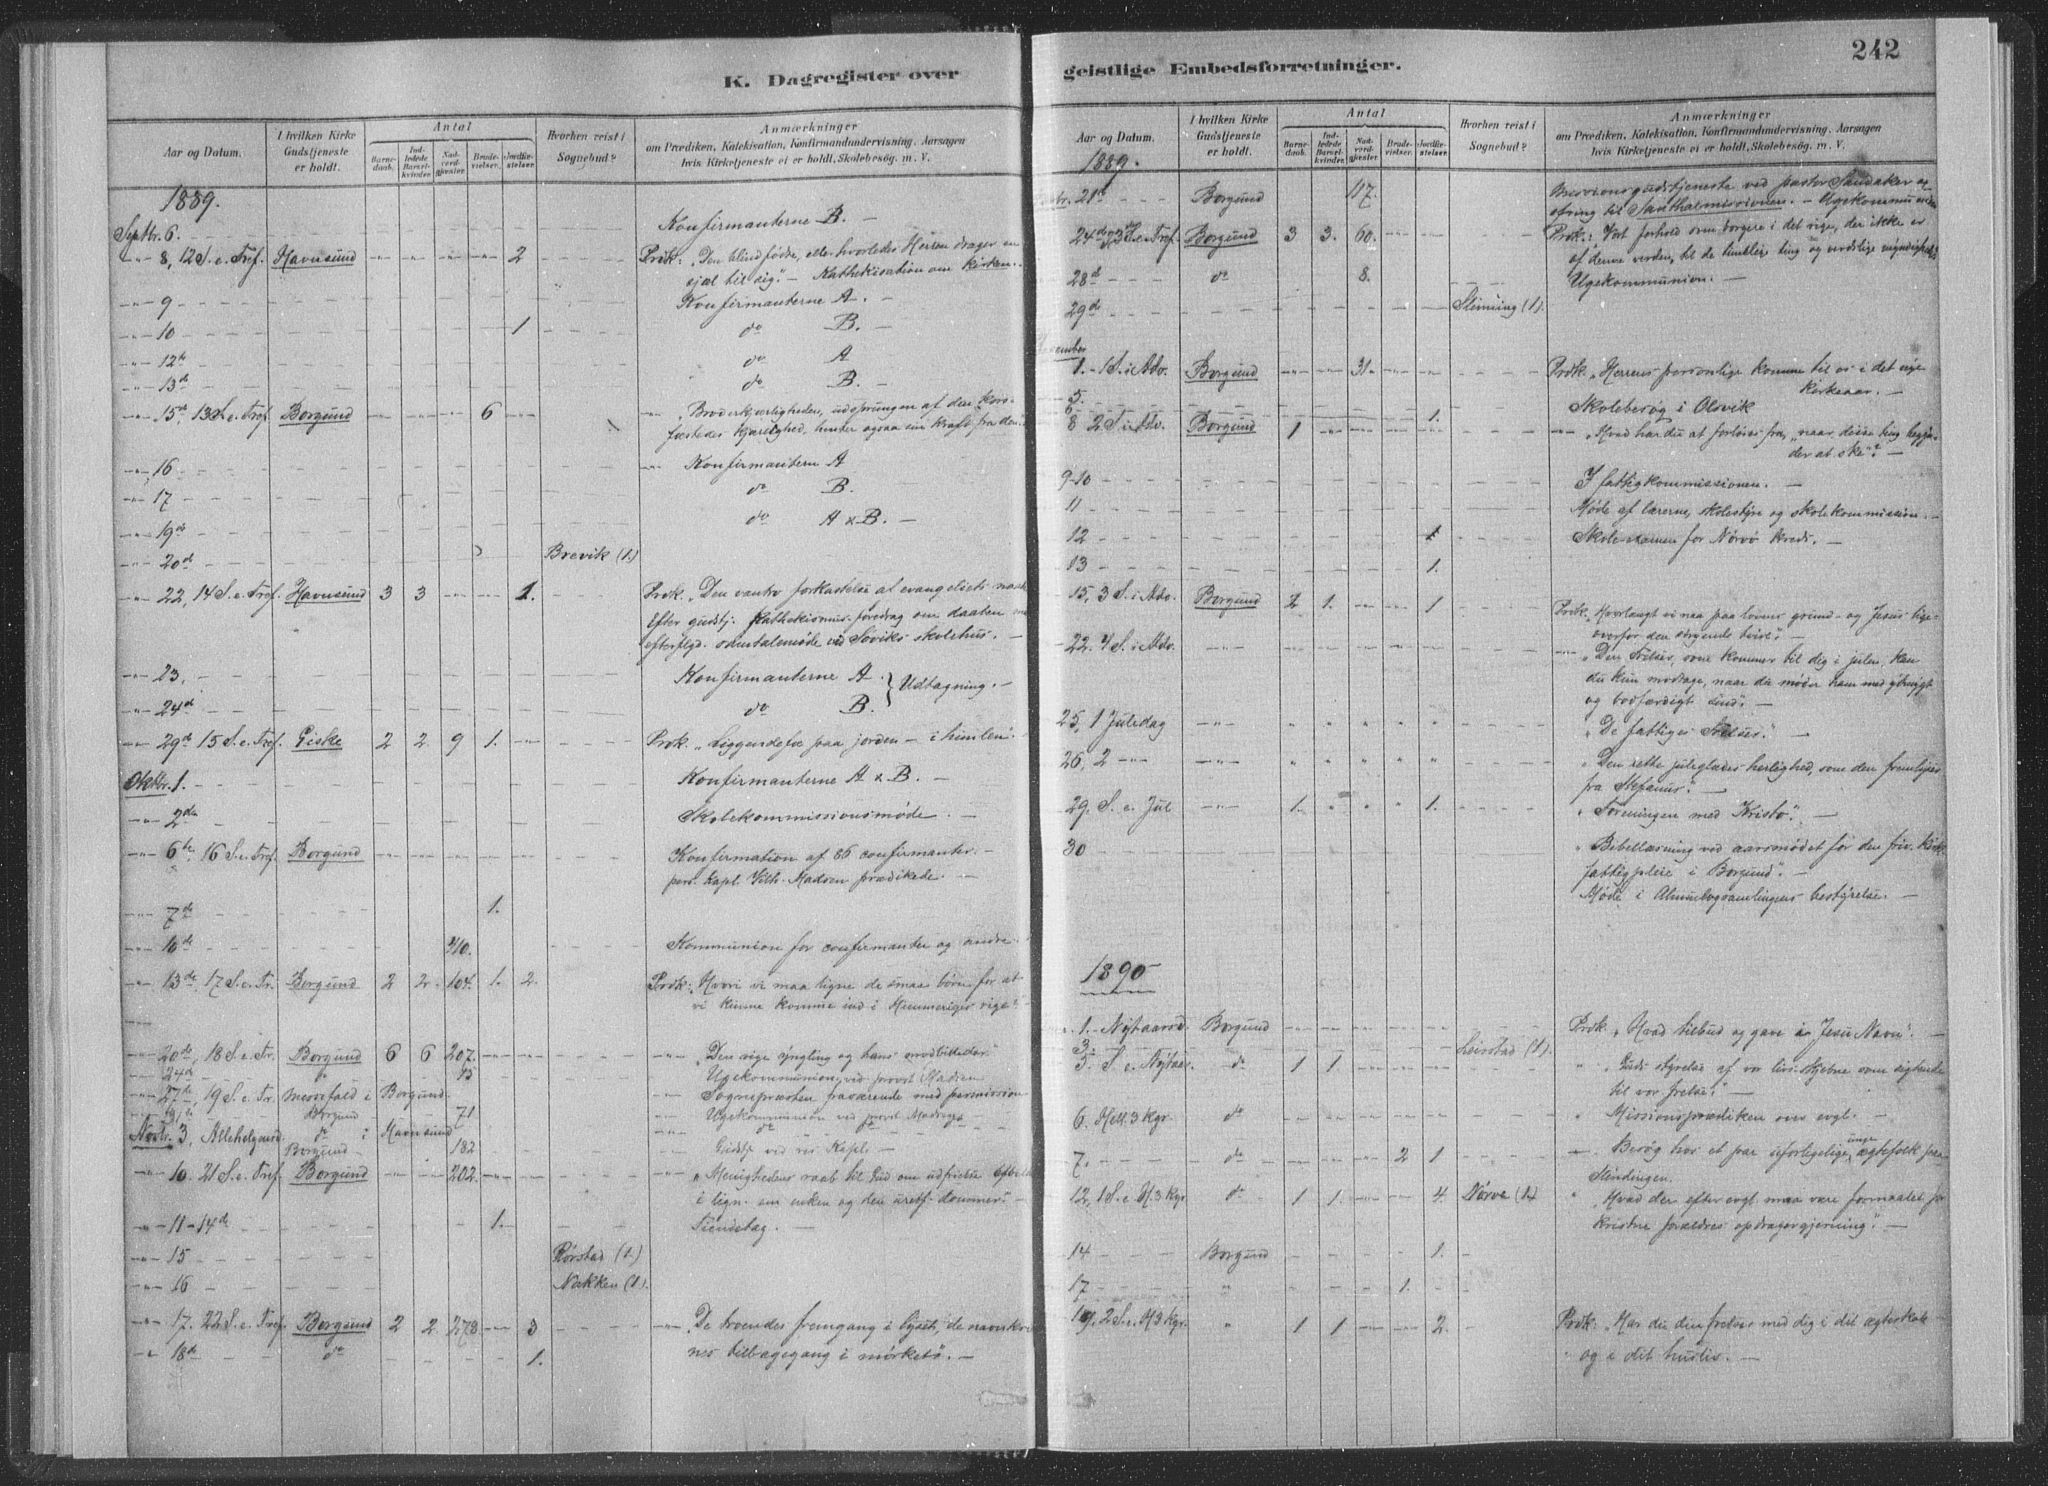 242
K. Dagregister over
Aar og Datum.
I hvilken Kirke Gudstjeneste er holdt.
Antal
Barnedaab.
Indledede Barselkvinder
Nadvordgjester
Brudevielser.
Jordfæstelser.
Hvorhen reist i Sognebud?
Anmærkninger
om Prædiken, Katekisation, Konfirmandundervisning, Aarsagen
hvis Kirketjeneste ei er holdt, Skolebesøg. m. V.
1889.
Septbr. 6. Konfirmanterne B. —
8, 12 S. e. Tref. Havnsund 2 Prdk: „Den blindfødte, eller hvorledes Herren drager en
sjæl til sig." — Kathekisation om kirken.
9 Konfirmanterne A. —
10 1 do B. —
12te do A
13de do B. —
15de, 13 S. e. Tref. Borgund 6 „Broderkjærligheden, udsprungen af den Kors-
fæstedes kjærlighed, henter ogsaa sin kraft fra den."
16 Konfirmanterne A
17 do B. —
19de do A & B. —
20de Brevik (1.)
22, 14 S. e. Tref. Havnsund 3 3 1. Prdk. „Den vantro forkastelse af evangeliets
Efter gudstj. Kathekismus-foredrag om daaben
efterflgd. samtalemøde ved Søviks skolehus. —
23, Konfirmanterne A. } Udtagning. —
24de do B.
29de 15 S. e. Tref. Giske 2 2 9 1. Prdk. „Liggendefæ paa jorden — i himlen".
Oktbr. 1. Konfirmanterne A & B. —
2de Skolekommissionsmøde. —
6te, 16 S. e. Tref. Borgund Konfirmation af 86 confirmanter. —
pers. kapl. Vilh. Madsen prædikede. —
7de 1.
10de 210. Kommunion for confirmanter og andre.
13de, 17 S. e. Tr. Borgund 2 2 104. 1. 2. Prdk: „Hvori vi maa ligne de smaa børn for at
vi kunne komme ind i Himmeriges rige?"
20de, 18 S. e. Tr. Borgund 6 6 207. „Den rige yngling og hans modbilleder."
24de 15 Ugekommunion, ved provst Madsen
27de, 19 S. e. Tr. Messefald i Borgund Sognepræsten fraværende med permission
Borgund 71 Ugekommunion ved provst Madsen
Novbr. 3, Allehelgensd. do i Havnsund
Borgund 182 Gudstj. ved res. Kapel.
10. 21 S. e. Tref. Borgund 202. „Menighedens raab til Gud om udfrielse
i lign. om enken og den uretf. dommer."
11–14de 1. Tiendetag. —
15 Rørstad (1.)
16 Nakken (1).
17. 22 S. e. Tref. Borgund 2 2 278 3 „De troendes fremgang i lyset, de navnkrist-
nes tilbagegang i mørket". —
18de do 1.
geistlige Embedsforretninger.
Aar og Datum.
I hvilken Kirke Gudstjeneste er holdt.
Antal
Barnedaab.
Indledede Barselkvinder
Nadvordgjester
Brudevielser.
Jordfæstelser.
Hvorhen reist i Sognebud?
Anmærkninger
om Prædiken, Katekisation, Konfirmandundervisning, Aarsagen
hvis Kirketjeneste ei er holdt, Skolebesøg. m. V.
1889.
21de Borgund 117. Missionsgudstjeneste ved pastor Sandaker og
ofring til Santhalmissionen. — Ugekommunion
24de, 23 S. e. Tref. Borgund 3 3. 60. Prdk.: Vort forhold som borgere i det rige, der ikke er
af denne verden, til de timelige ting og verdslige myndigheder
28de do 8. Ugekommunion. —
29de Slinning (1).
December
1. 1 S. i Adv. Borgund 31. Prdk. „Herrens personlige komme til os i det nye
kirkeaar. —
5. Skolebesøg i Olsvik
6 1.
8 2 S. i Adv. Borgund 1 „Hvad har du at forløses fra, „naar disse ting begyn-
der at ske"? —
9-10 I fattigkommissionen. —
11 Møde af lærerne, skolestyre og skolekommission. —
12 1 Skoleexamen for Nørvø kreds. —
13 1.
15, 3 S. i Adv. Borgund 2 1. 1 Prdk. „Hvorlangt vi naa paa lovens grund — og Jesus lige-
overfor den sørgende tvivl". —
22. 4 S. i Adv. „Den Frelser, som kommer til dig i julen, kan
du kun modtage, naar du møder ham med ydmygt
og bodfærdigt sind". —
25, 1 Juledag „De fattiges Frelser". —
26, 2 „Den rette juleglædes herlighed, som den fremlyser
fra Stefanus". —
29. S. e. Jul 1. 1. „Foreningen med Kristo". —
30 Bibellæsning ved aarsmødet for den friv. kirk.
fattigpleie i Borgund". —
Møde i Almuebogsamlingens bestyrelse. —
1890
1. Nytaarsd. Borgund Prdk. „Hvad tilbud og gave i Jesu Navn". —
3. Leirstad (1).
5. S. e. Nytaar. do 1 1 „Guds styrelse af vor livs skjebne som sigtende
til vor frelse". —
6. Hell. 3 Kgr. do Missionsprædiken over evgl. —
7. do 2 1 Besøg hos et par uforligelige unge ægtefolk paa
Slindingen.
12, 1 S. e. H. 3 Kgr. do 1 1 4. Nørve (1.) „Hvad der efter evgl. maa være formaalet for
kristne forældres opdragergjerning". —
14 Borgund 1.
17 1.
19. 2 S. e. H. 3 Kgr. 1 1 2. Prdk. „Har du din frelser med dig i dit ægteskab
og i dit husliv. —